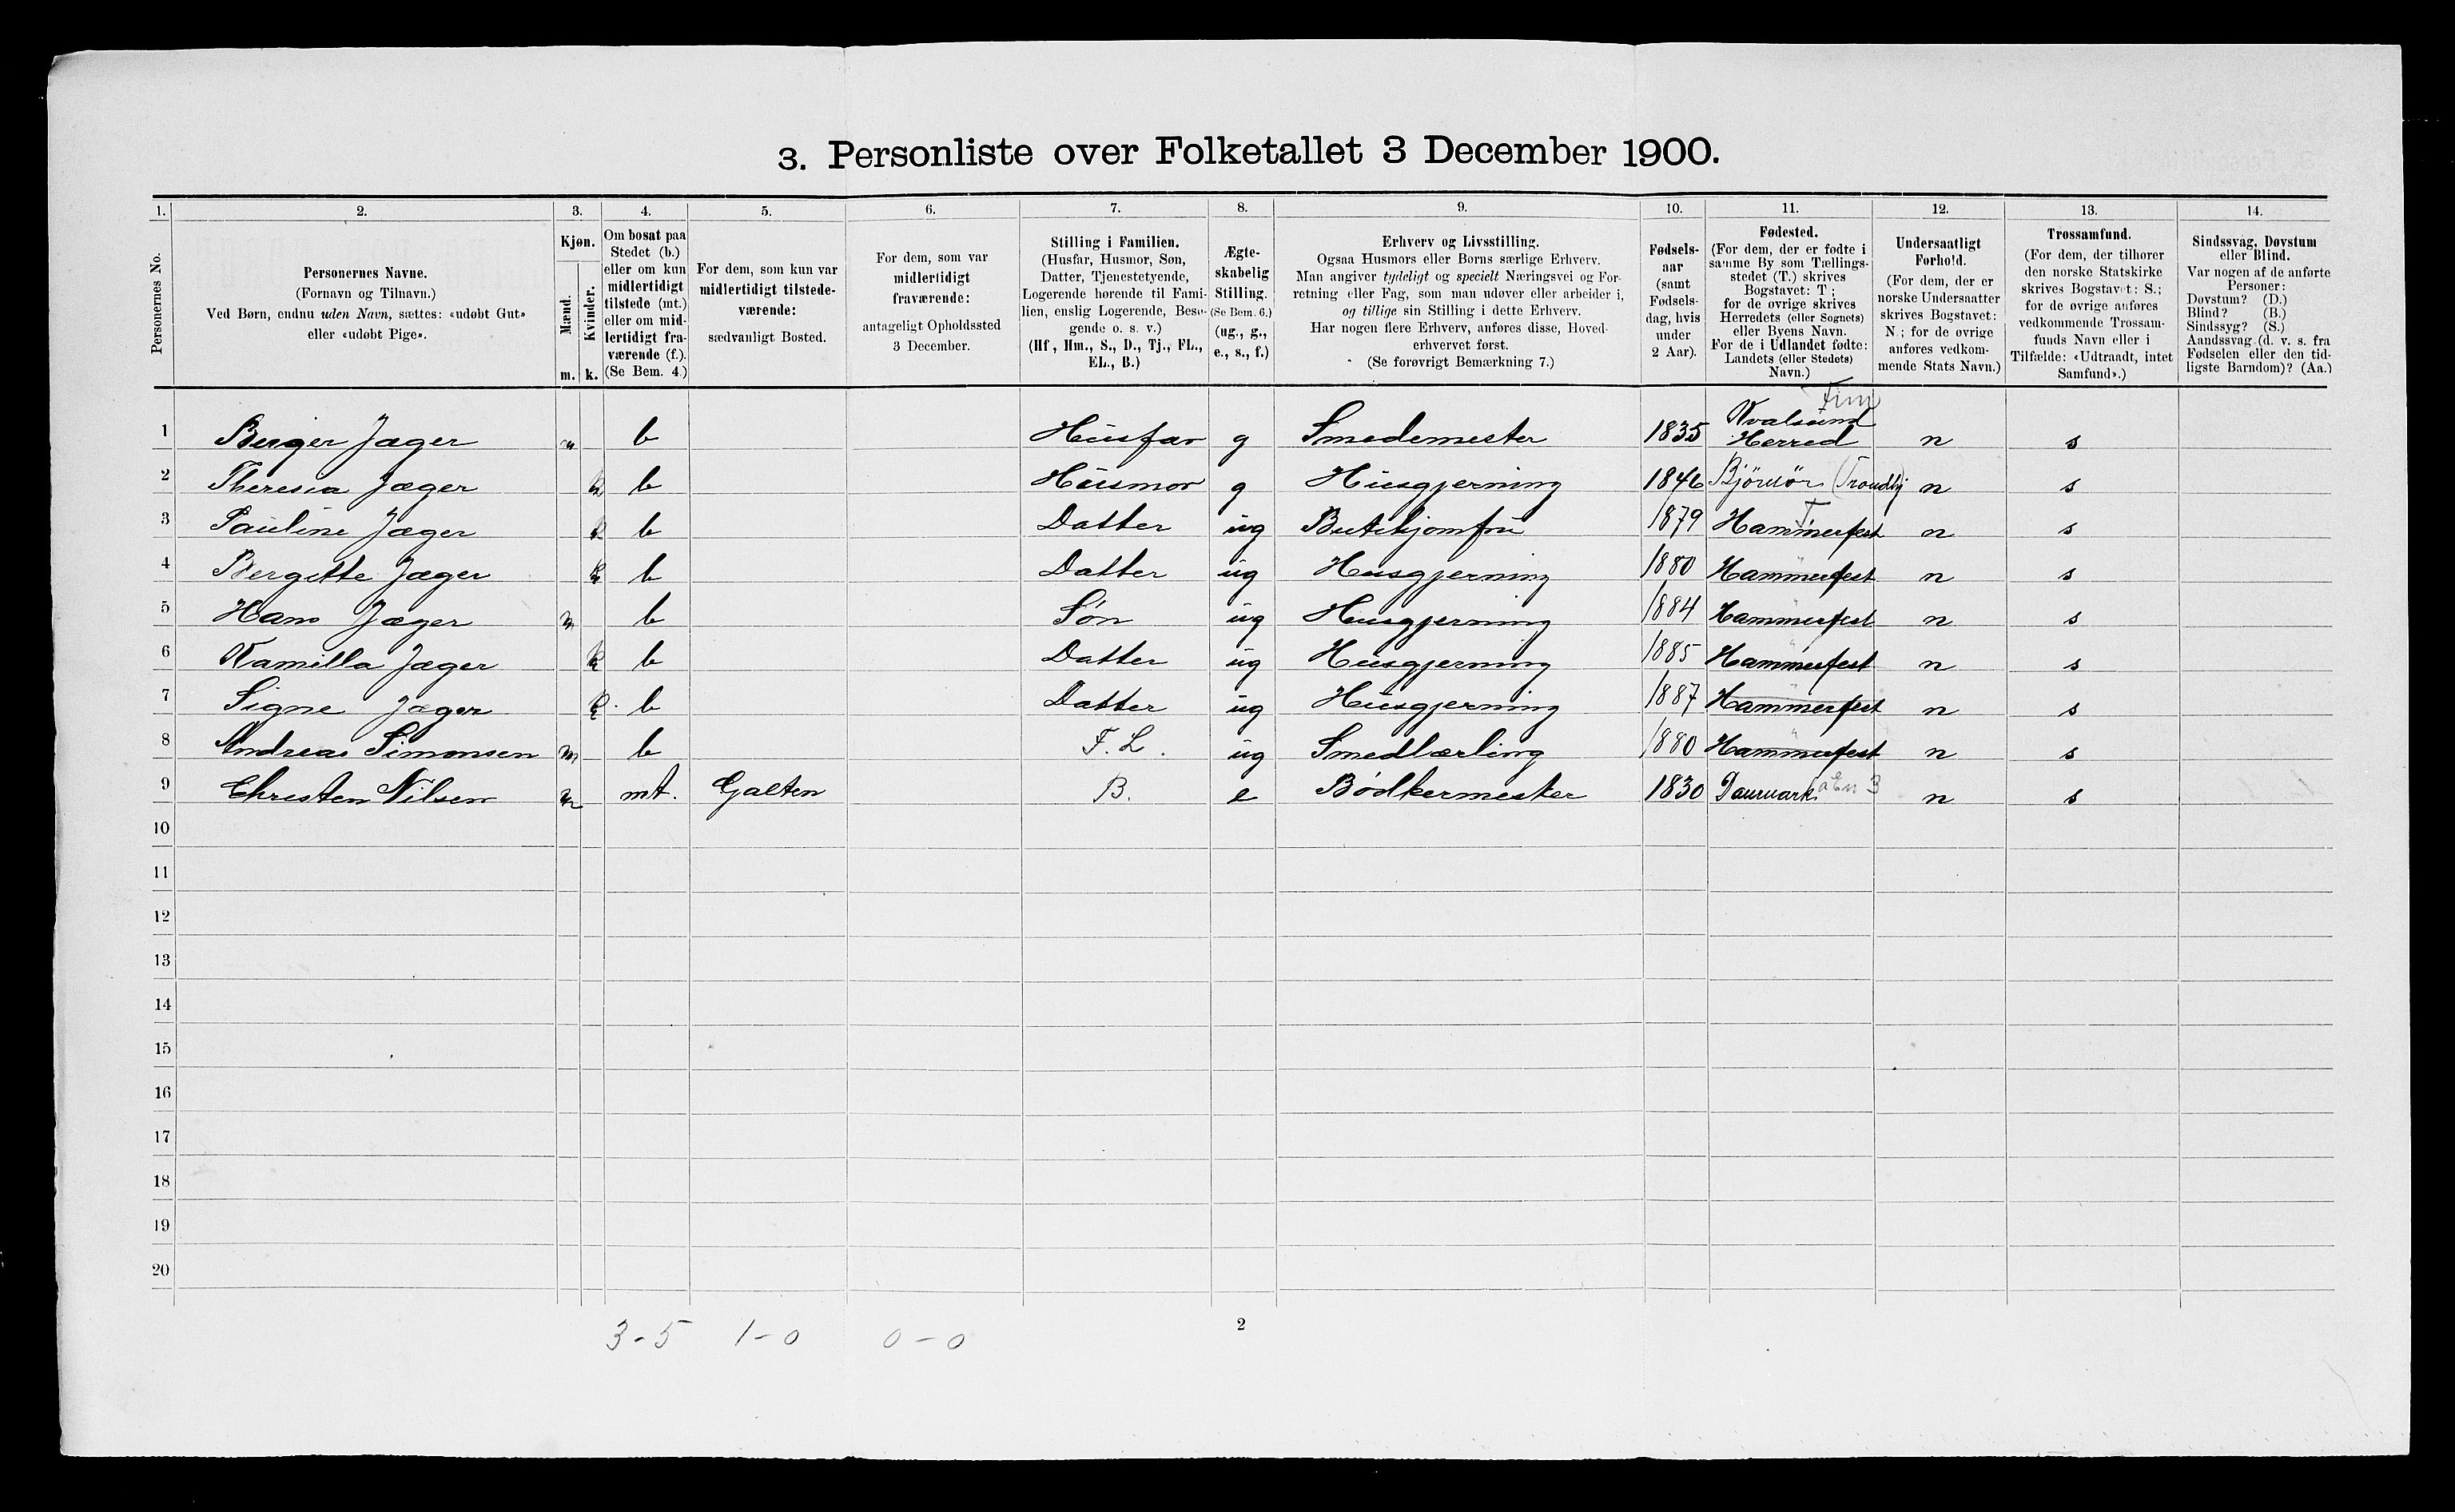 3. Personliste over Folketallet 3 December 1900.
1. 2. 3. 4. 5. 6. 7. 8. 9. 10. 11. 12. 13. 14.
Personernes No.
Personernes Navne.
(Fornavn og Tilnavn.)
Ved Børn, endnu uden Navn, sættes: «udøbt Gut»
eller «udøbt Pige».
Kjøn.
Mænd.
Kvinder.
m. k.
Om bosat paa
Stedet (b.)
eller om kun
midlertidigt
tilstede (mt.)
eller om mid-
lertidigt fra-
værende (f.).
(Se Bem. 4.)
For dem, som kun var
midlertidigt tilstede-
værende:
sædvanligt Bosted.
For dem, som var
midlertidigt
fraværende:
antageligt Opholdssted
3 December.
Stilling i Familien.
(Husfar, Husmor, Søn,
Datter, Tjenestetyende,
Logerende hørende til Fami-
lien, enslig Logerende, Besø-
gende o. s. v.)
(Hf., Hm., S., D., Tj., FL.,
EL., B.)
Ægte-
skabelig
Stilling.
(Se Bem. 6.)
(ug., g.,
e., s., f.)
Erhverv og Livsstilling.
Ogsaa Husmors eller Børns særlige Erhverv.
Man angiver tydeligt og specielt Næringsvei og For-
retning eller Fag, som man udøver eller arbeider i,
og tillige sin Stilling i dette Erhverv.
Har nogen flere Erhverv, anføres disse, Hoved-
erhvervet først.
(Se forøvrigt Bemærkning 7.)
Fødsels-
aar
(samt
Fødsels-
dag, hvis
under
2 Aar).
Fødested.
(For dem, der er fødte i
samme By som Tællings-
stedet (T.) skrives
Bogstavet: T;
for de øvrige skrives
Herredets (eller Sognets)
eller Byens Navn.
For de i Udlandet fødte:
Landets (eller Stedets)
Navn.)
Undersaatligt
Forhold.
(For dem, der er
norske Undersaatter
skrives Bogstavet:
N.; for de øvrige
anføres vedkom-
mende Stats Navn.)
Trossamfund.
(For dem, der tilhører
den norske Statskirke
skrives Bogstavet: S.;
for de øvrige anføres
vedkommende Trossam-
funds Navn eller i
Tilfælde: «Udtraadt, intet
Samfund».)
Sindssvag, Døvstum
eller Blind.
Var nogen af de anførte
Personer:
Døvstum? (D.)
Blind? (B.)
Sindssyg? (S.)
Aandssvag (d. v. s. fra
Fødselen eller den tid-
ligste Barndom)? (Aa.)
Finm
1 Berger Jæger m b Husfar g Smedemester 1835 Kvalsund Herred n s
2 Theresia Jæger k b Husmor g Husgjerning 1846 Björnör (Trondhj n s
T
3 Pauline Jæger k b Datter ug Butikjomfru 1879 Hammerfest n s
4 Bergitte Jæger k b Datter ug Husgjerning 1880 Hammerfest n s
5 Hans Jæger m b Søn ug Husgjerning 1884 Hammerfest n s
6 Kamilla Jæger k b Datter ug Husgjerning 1885 Hammerfest n s
7 Signe Jæger k b Datter ug Husgjerning 1887 Hammerfest n s
8 Andreas Simonsen m b F. L. ug Smedlærling 1880 Hammerfest n s
9 Christen Nilsen m mt. Galten B. e Bødkermester 1830 Danmark n s
10
11
12
13
14
15
16
17
18
19
20
3-5 1-0 0-0
2